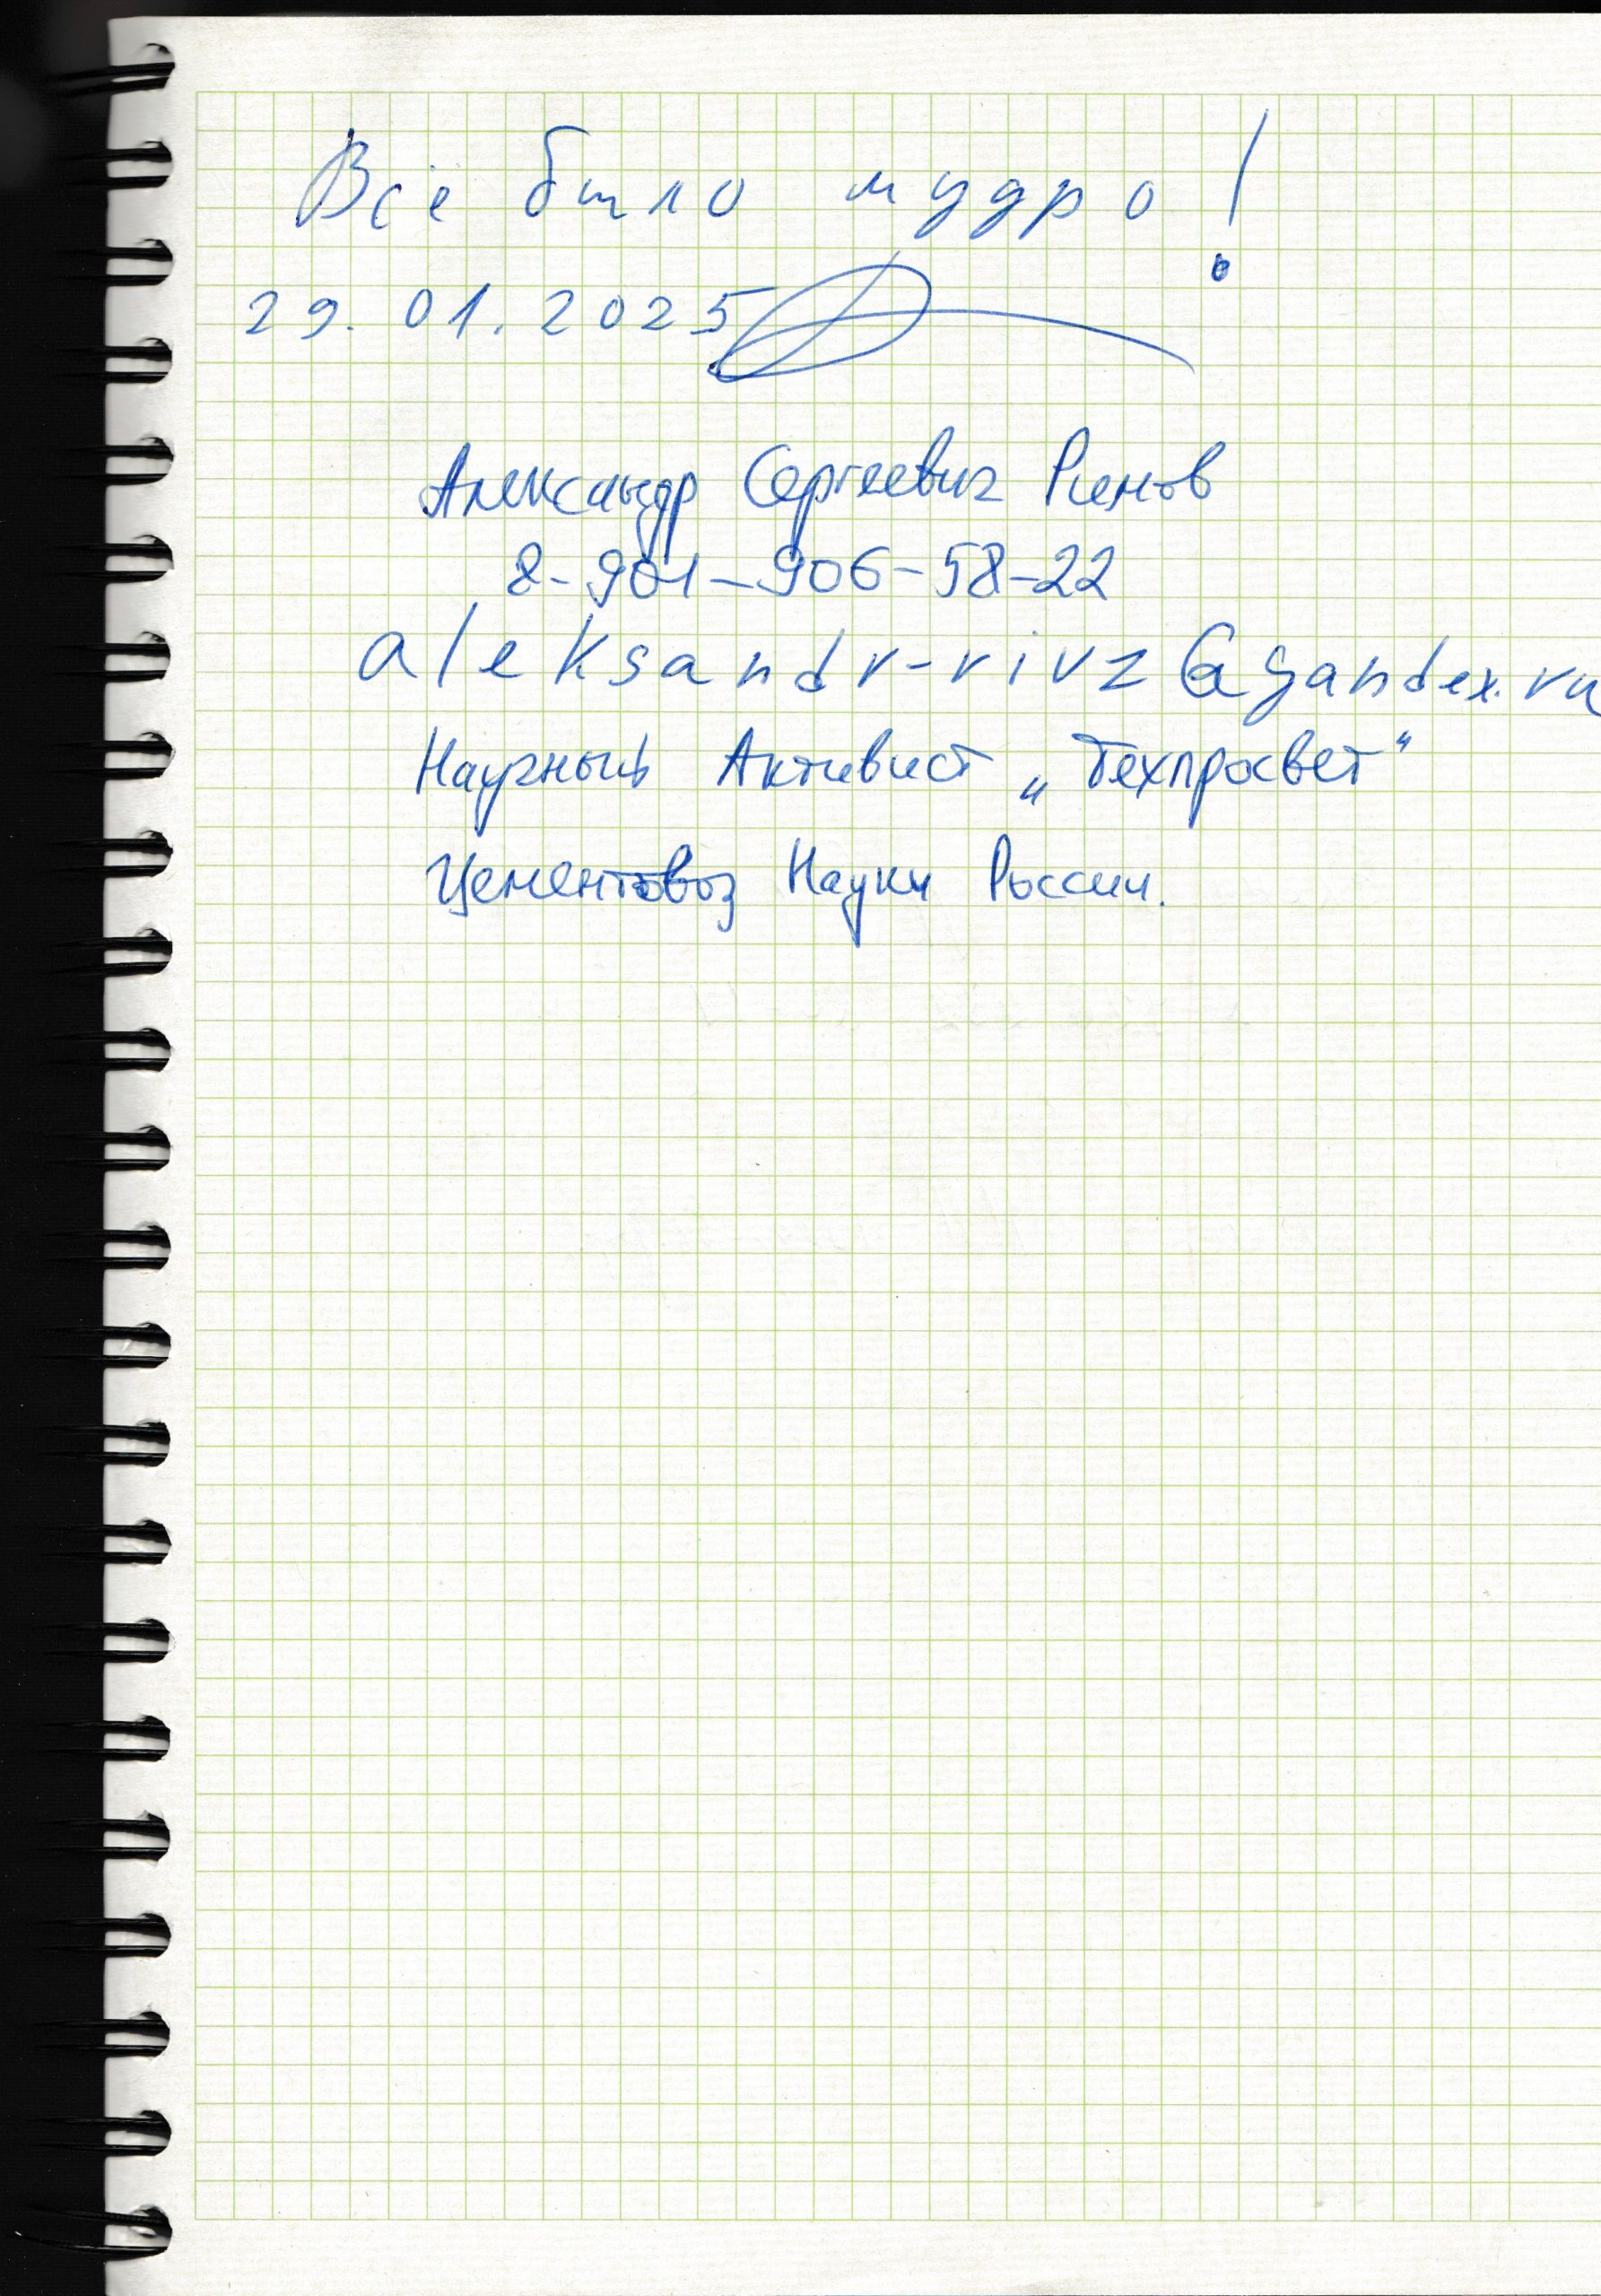 Всё было мудро!
29.01.2025
Александр Сергеевич
8-901-906-58-22
aleksandr-rivz@yandex.ru
Научный Активист „Техпросвет“
Цементовоз Науки России.